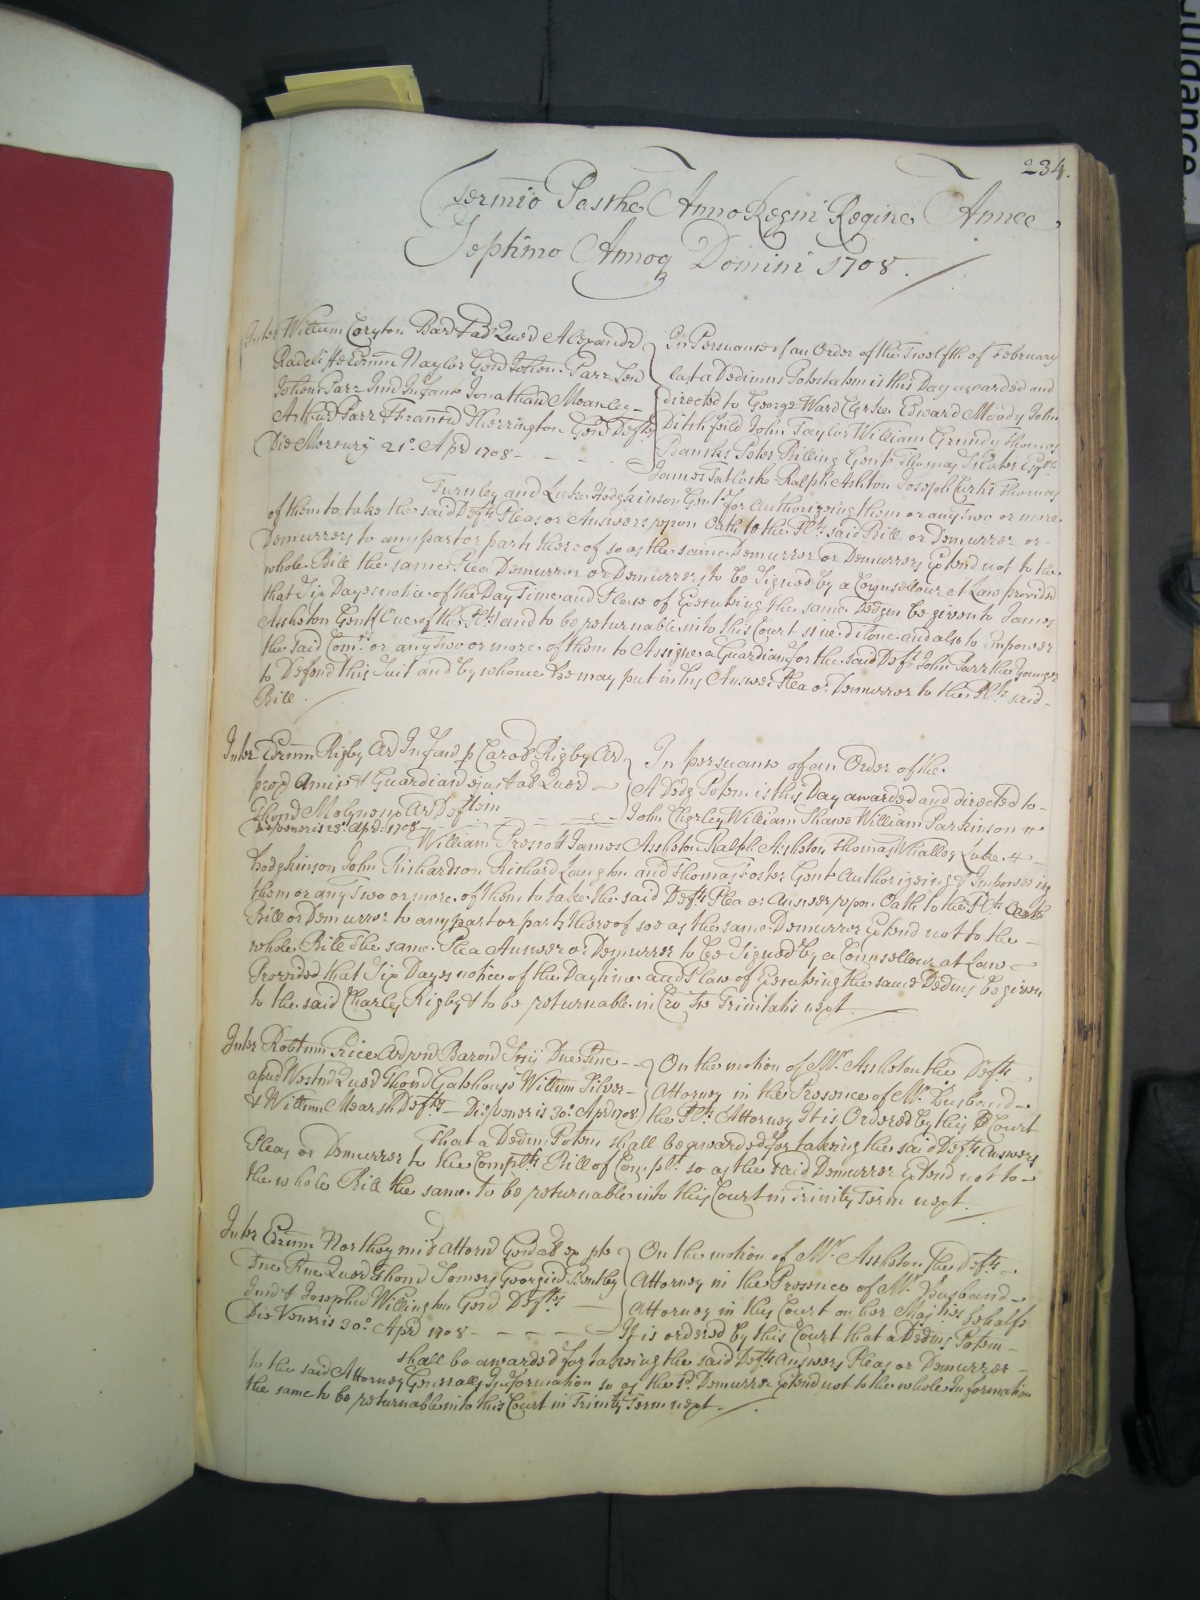 Guidance
234.
Termio Pasche Anno Regni Regine Annee
Septimo Annoq Domini 1708.
Inter Willum Coryton Bard & ad Quer & Alexandr
Radcliffe Edrum Naylor Gend Parr Sen
Parr Jun Infans Jonathan
Arthur Parr & Sherrington Gend Defts
Die Mercurij 21o. Aprl 1708 - - - - -
In Persuance of an Order of the Twelfth of February
last a Dedimus Potestatem is this Day awarded and
directed to George Ward Clerke Edward Moody John
Ditchfeild John Taylor William Grundy Thomas
Banks Peter Billing Gent Thomas
James Tatlocke Ralph Ashton Joseph Thomas
Turnley and Luke Hodgkinson Gent for Authorizeing them or any Two or more
of them to take the said Defts Pleas or Answers upon Oath to the Plts said Bill or Demurrer or
Demurrers to any part or parts thereof so as the same Demurrer or Demurrers Extend not to the
whole Bill the same Plea Demurrer or Demurrers to be Signed by a Counsellour at Law provided
that Six Dayes notice of the Day Time and Place of Executeing the same Dedim be given to James
Ashston Gent (One of the Plts) and to be returnable into this Court sine dilone and also to impower
the said Comrs. or any Two or more of them to Assigne a Guardian for the said Deft John Parr the Younger
to Defend this Suit and by whome he may put in his Answer Plea or Demurrer to the Plts said
Bill.
Inter Edrum Rigby Ar Infand p Carol Rigby Ar
prox Amic & Guardian ejus ad Quer
Thom Molyneux Ar Deftem
Die Veneris 23o. Apr. 1708 - - - -
In persuance of an Order of the
A Ded Potem is this Day awarded and directed to
John Charley William Shawe William Parkinson
William Prescott James Ashston Ralph Ashston Thomas Whalley Luke
Hodgkinson John Richardson Richard Langton and Thomas Foster Gent Authorizeing & Impowering
them or any Two or more of them to take the said Defts Plea or Answer upon Oath to the Plts
Bill or Demurrer to any part or parts thereof soe as the same Demurrer Extend not to the
whole Bill The same Plea Answer or Demurrer to be Signed by a Counsellour at Law
Provided that Six Dayes notice of the Day time and Place of Executeing the same Dedimus be given
to the said Charles Rigby & to be returnable in Cro Sce Trinitatis next
Inter Robtum Price Ar Baron Scij Dne Rne
apud Westm Quer & Thom Gatehouse Willum Silver
& Willum Mearsh Defts - Die Veneris 30o. Aprl 1708
On the motion of Mr. Ashston the Defts
Attorney in the Presence of Mr. Husband
the Plts Attorney It is Ordered by this Court
That a Dedim Potem shall be awarded for takeing the said Defts Answers
Pleas or Demurrer to the Complts Bill of Complt so as the said Demurrer Extend not to
the whole Bill the same to be returnable into this Court in Trinity Term next
Inter Edrum Northey mil Attorn Genal ex pte
Dne Rne Quer & Thom Somers Georgiu Bensley
Jund & Josephu Willington Gend Deftes
Die Veneris 30o. Aprl 1708 - - - - -
On the motion of Mr. Ashston The Defts
Attorney in the Presence of Mr. Husband
Attorney in this Court on her Majties behalfe
It is ordered by this Court that a Dedimus Potem
shall be awarded for takeing the said Defts Answers Pleas or Demurrer
to the said Attorney Generalls Information so as the sd. Demurrer Extend not to the whole Information
the same to be returnable into this Court in Trinity Term next